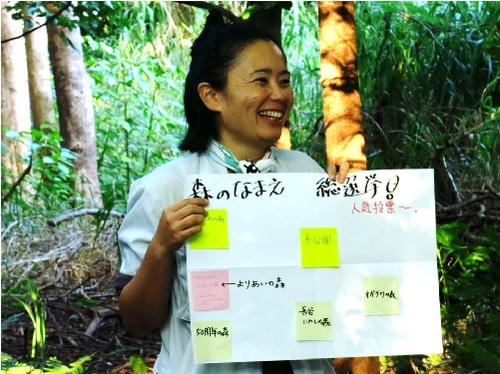 森のなまえ 総選挙!!
人気投票〜。
の森
長谷園
←よりあいの森
オガワの森
長谷
いやしの森
50周年の森